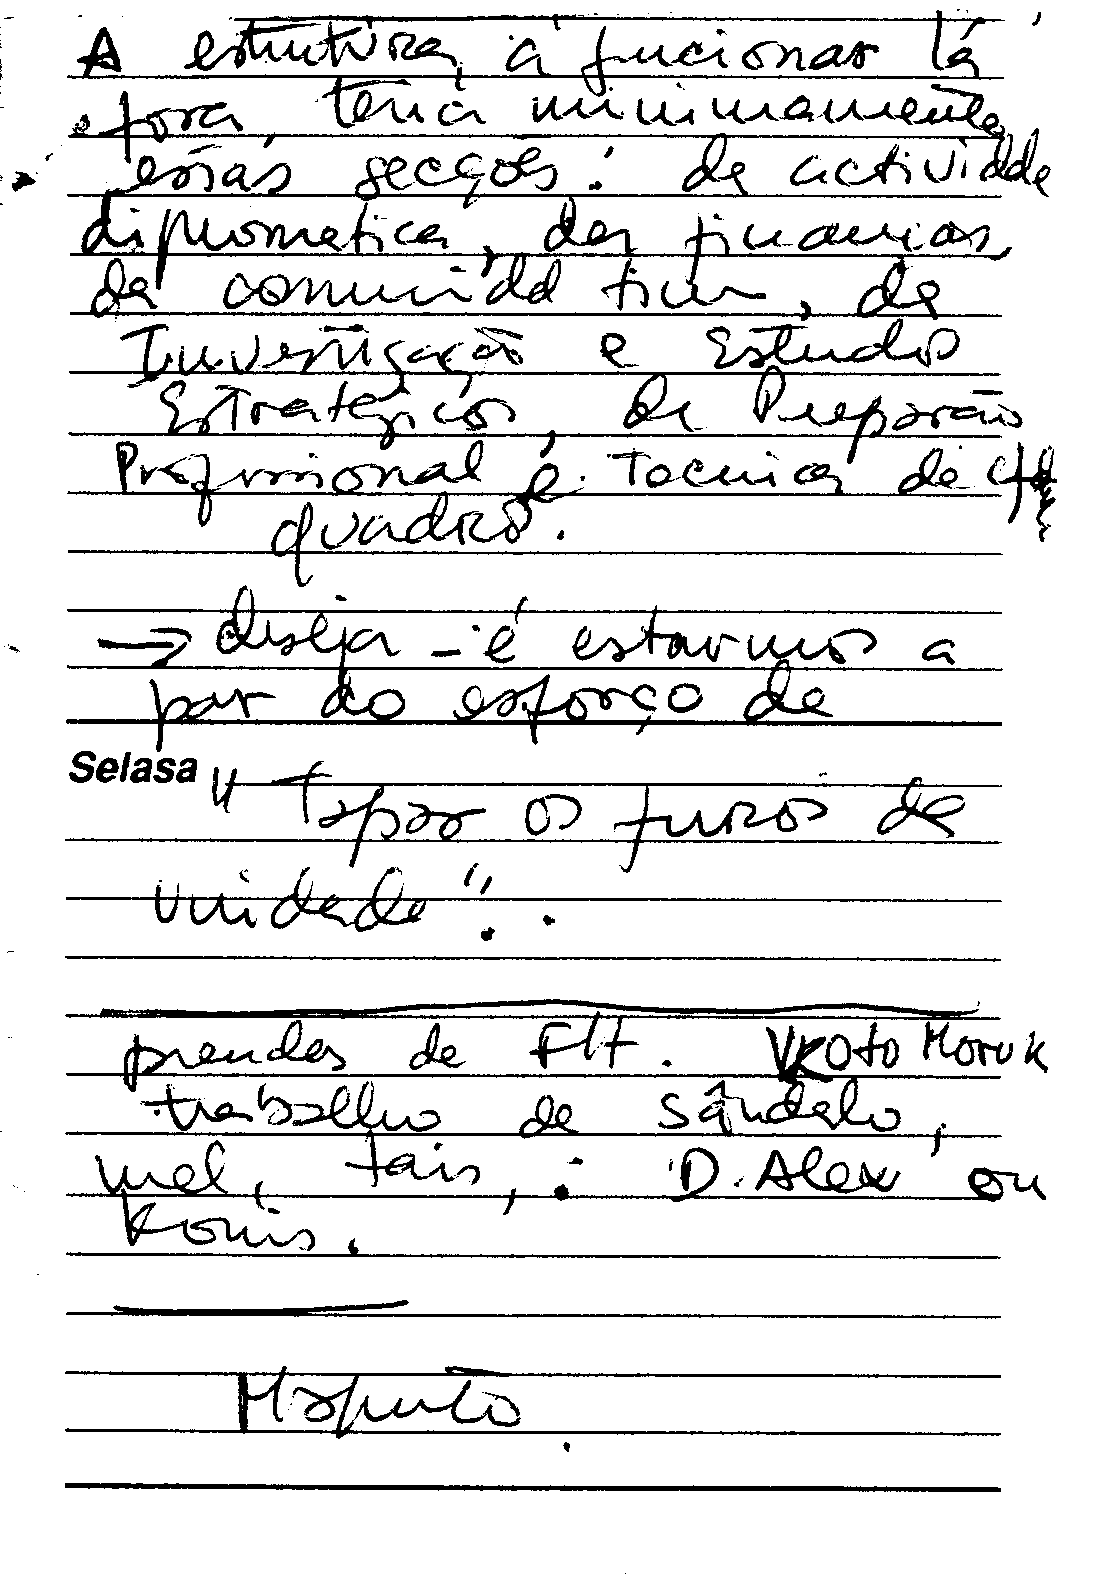 A estrutura, a fucionar lá
fora, terá minimamente
essas secções: de actividde
diplomatica, das financias,
de comunidd tim, de
Investigação e Estudos
Estratégicos, de Preparão
Profissional e Tecnica de
quadros.
→ diseja-é estarmos a
par do esforço de
Selasa
"Tapar os furos de
unidade".
prendas de FLT. Koto Moruk
trabalho de sândalo,
mel, tais, : D. Alex ou
Konis.
Maputo